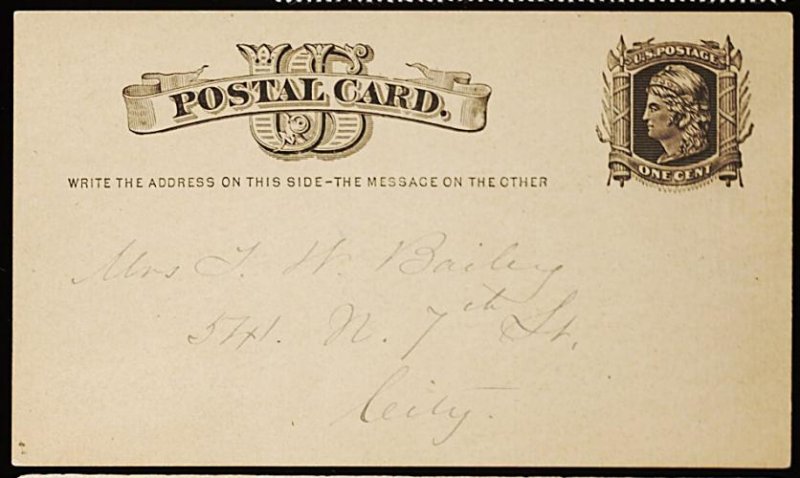 POSTAL CARD.
US
U.S. POSTAGE
ONE CENT
WRITE THE ADDRESS ON THIS SIDE-THE MESSAGE ON THE OTHER
Mrs J. W. Bailey
541. N. 7th St.
City.